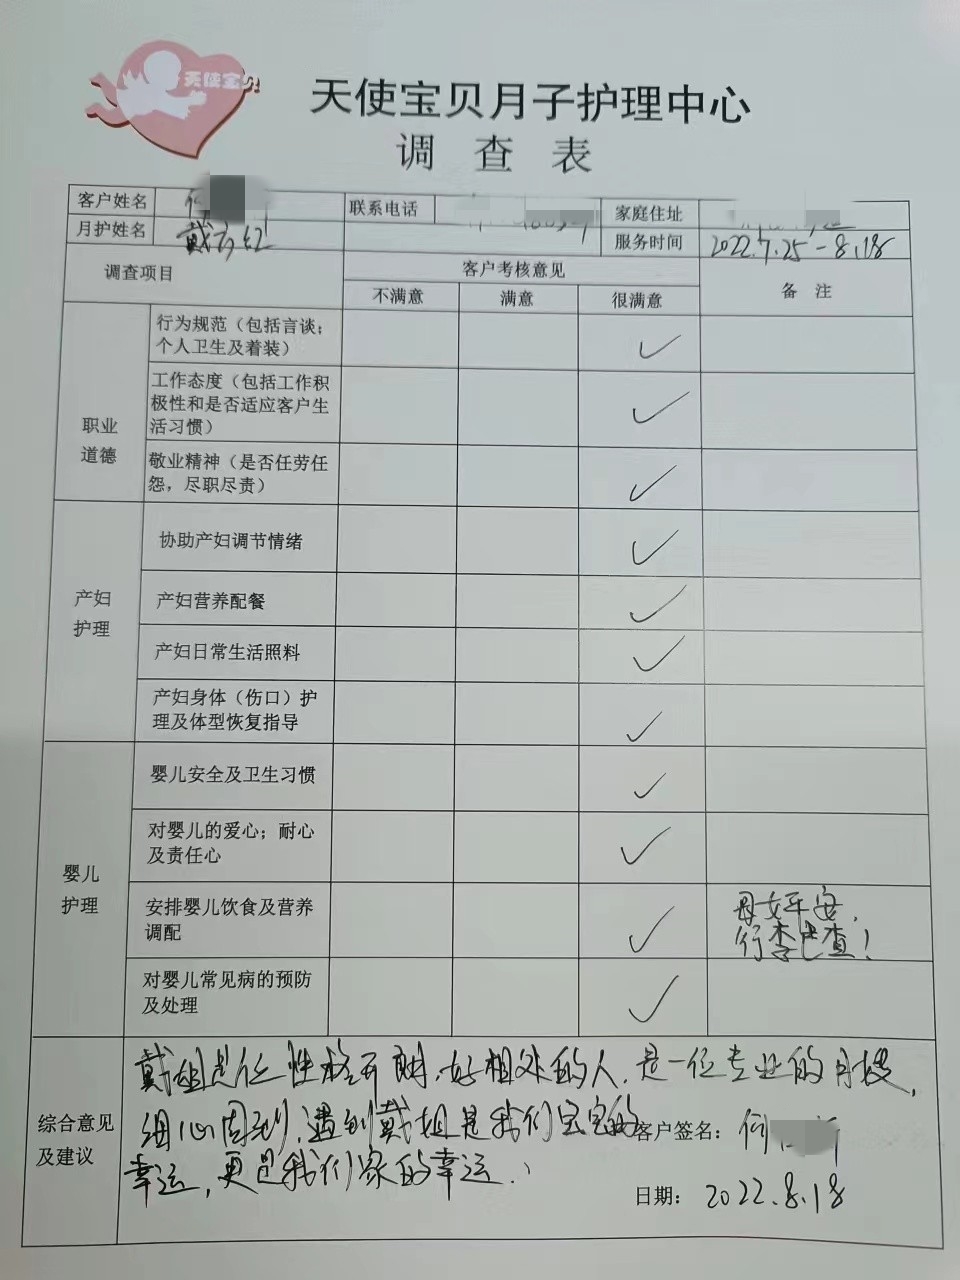 天使宝贝
天使宝贝月子护理中心
调查表
客户姓名
联系电话
家庭住址
月护姓名 戴
服务时间 2022.7.25-8.18
调查项目
客户考核意见
备 注
不满意 满意 很满意
职业
道德
行为规范（包括言谈；
个人卫生及着装）
工作态度（包括工作积
极性和是否适应客户生
活习惯）
敬业精神（是否任劳任
怨，尽职尽责）
产妇
护理
协助产妇调节情绪
产妇营养配餐
产妇日常生活照料
产妇身体（伤口）护
理及体型恢复指导
婴儿
护理
婴儿安全及卫生习惯
对婴儿的爱心；耐心
及责任心
安排婴儿饮食及营养
调配
母女平安，
行李已查！
对婴儿常见病的预防
及处理
综合意见
及建议
戴姐是位性格开朗，好相处的人，是一位专业的月嫂，
细心周到，遇到戴姐是我们宝宝的
幸运，更是我们家的幸运！
客户签名： 何
日期： 2022.8.18